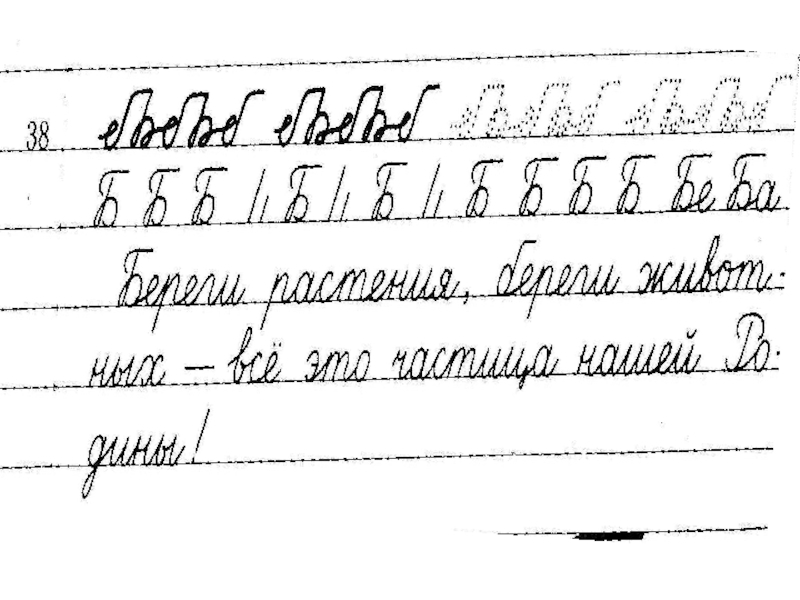 38
Б Б Б Б Б Б Б Б Б Бе Ба
Береги растения, береги живот-
ных – всё это частица нашей Ро-
дины!